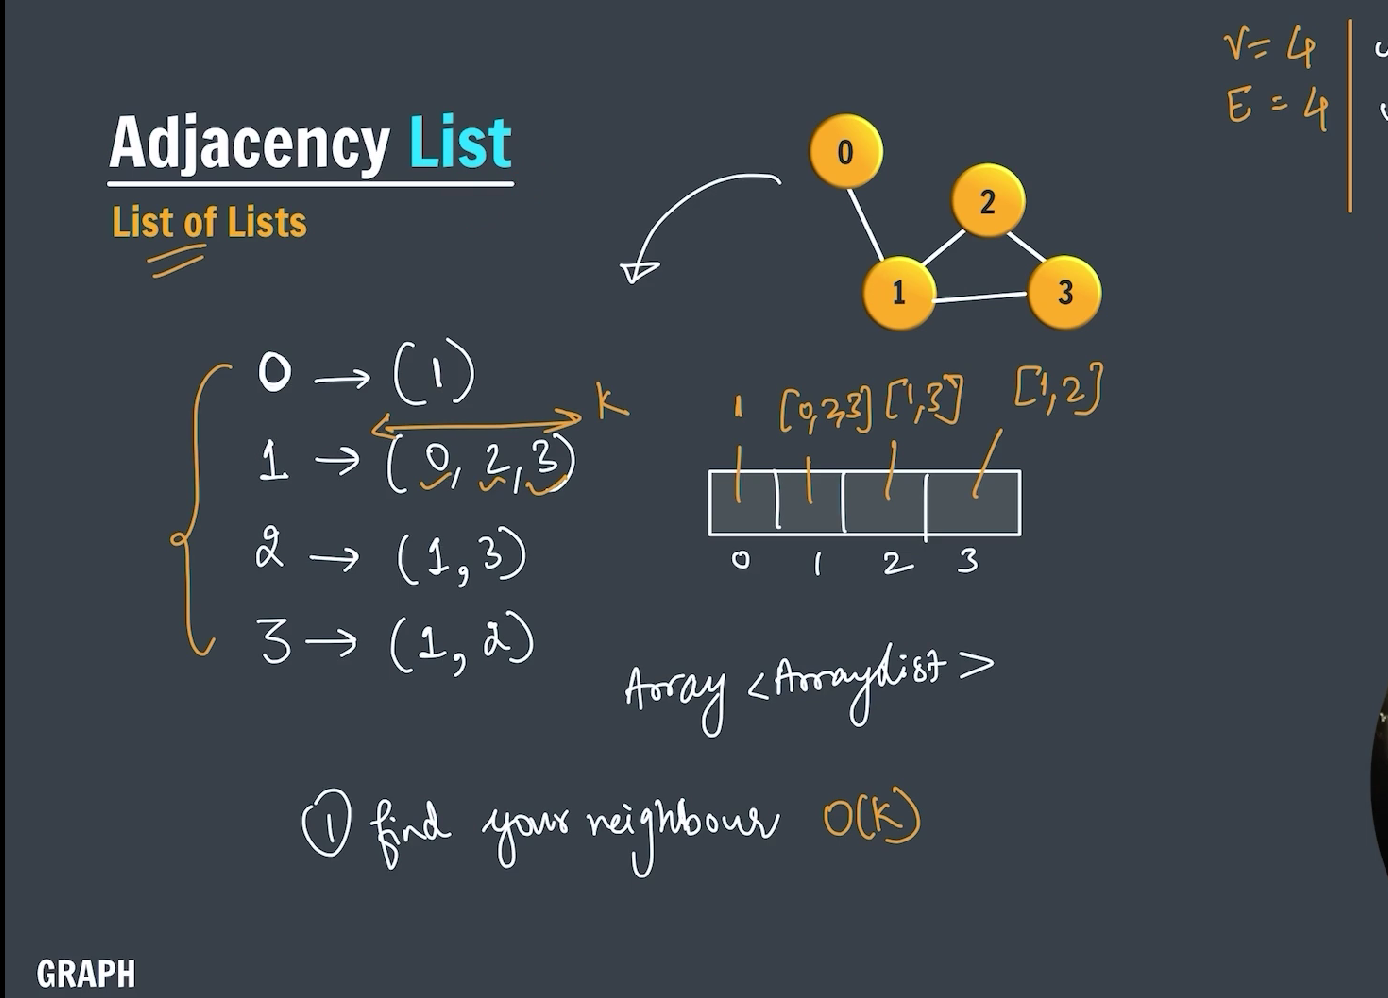 V= 4
E = 4
Adjacency List
List of Lists
0
2
1
3
0 → (1)
K
1 → (0, 2, 3)
2 → (1, 3)
3 → (1, 2)
1 [0,2,3] [1,3] [1,2]
0 1 2 3
Array <Arraylist>
① find your neighbour O(K)
GRAPH